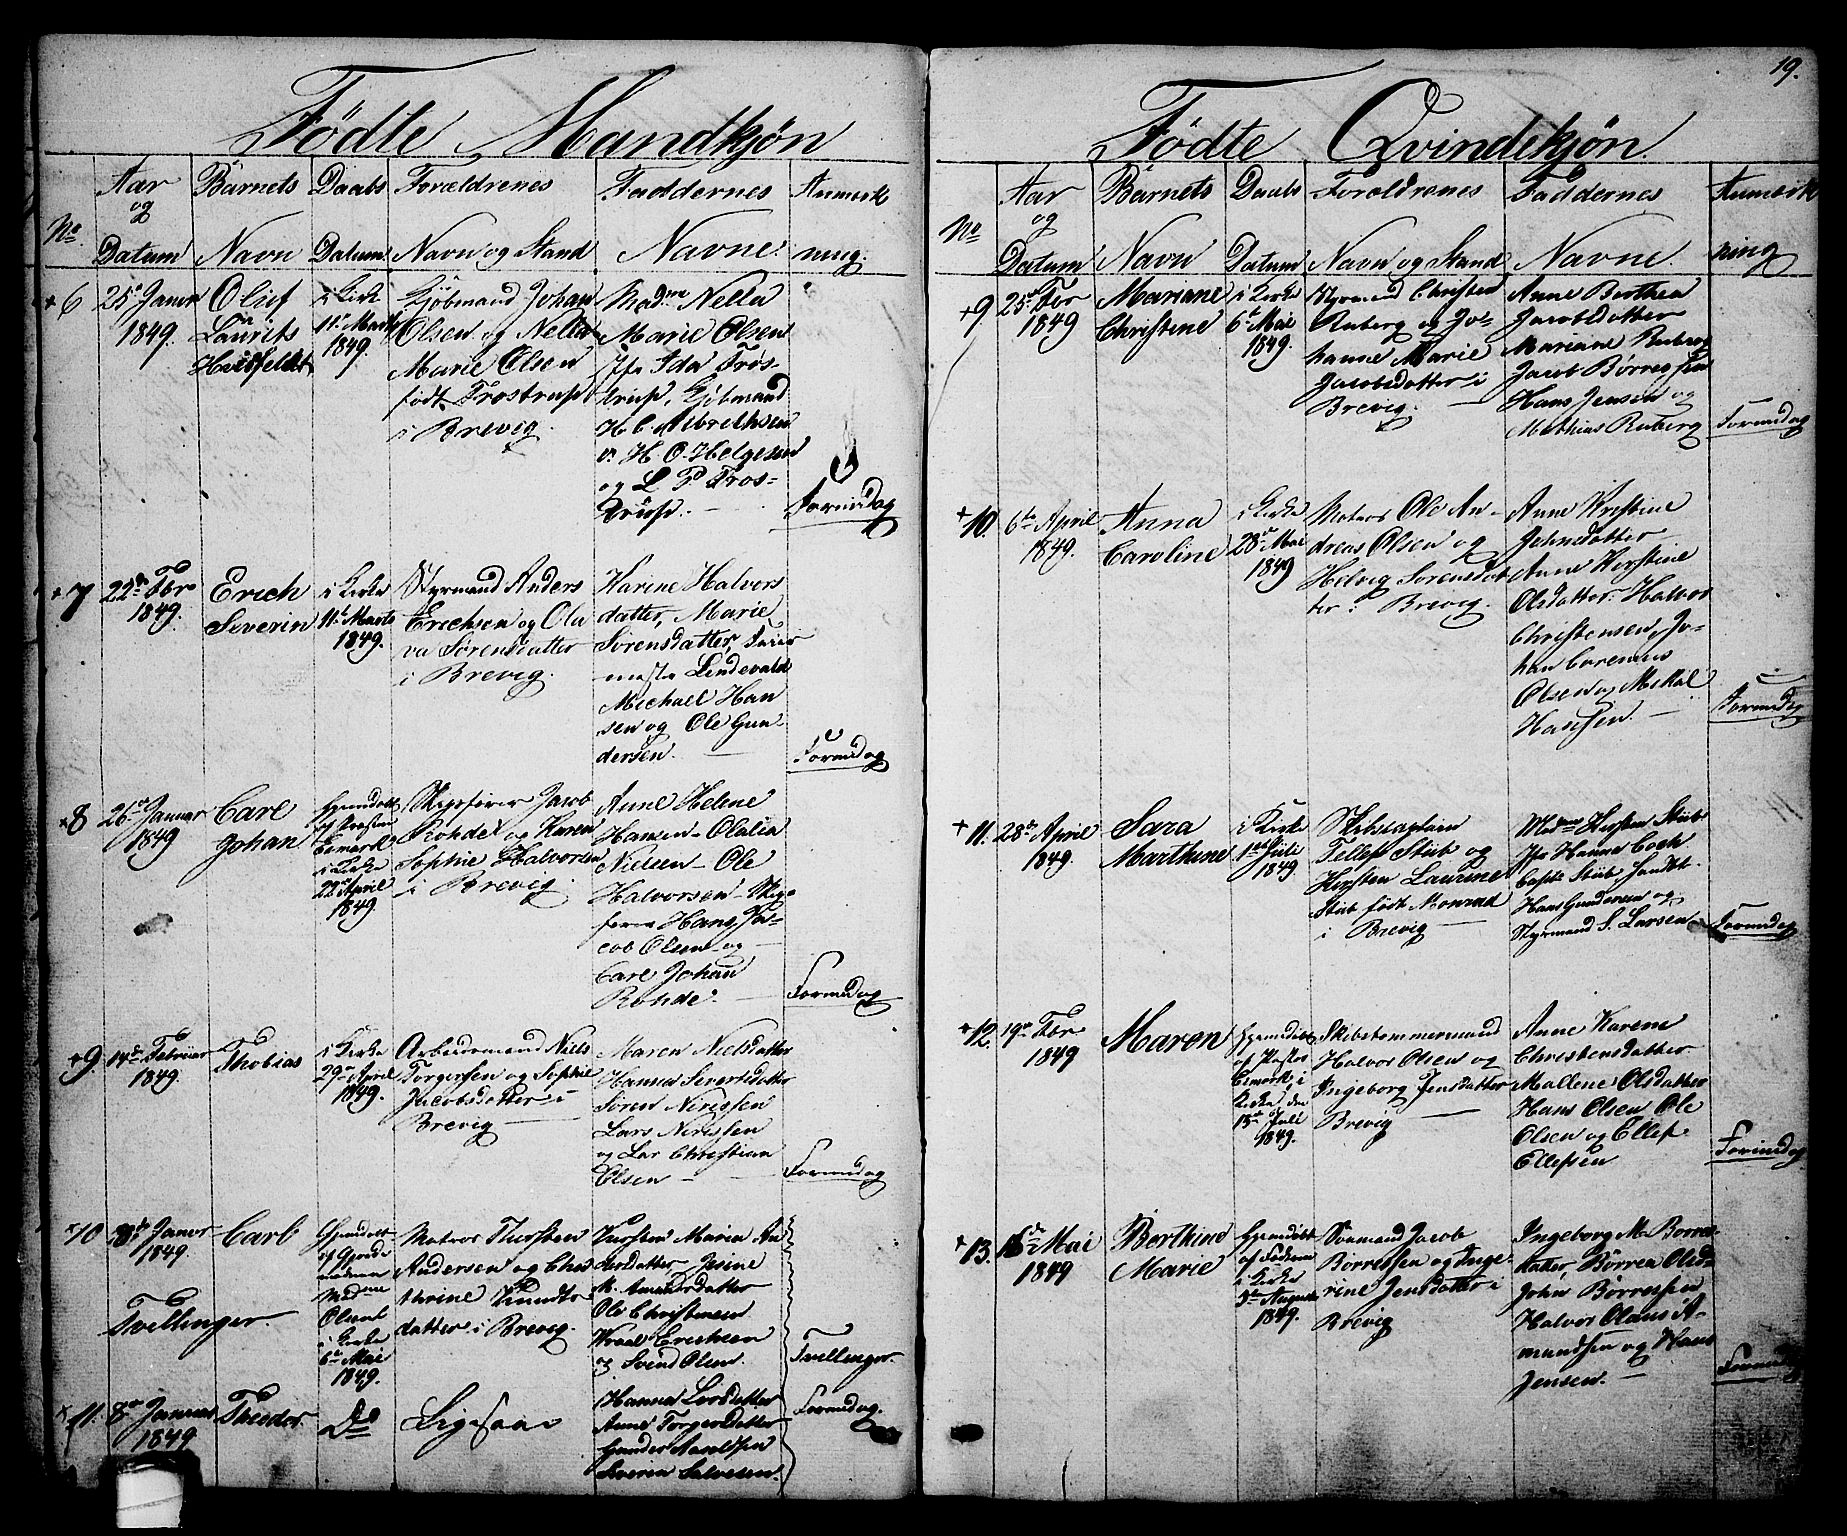 19.
Födte Mandkjøn
No
Aar og Datum
Barnets Navn
Daabs Datum
Forældrenes Navn og Stand
Faddernes Navne
Anmærkning.
+6
25de Januar
1849.
Oluf
Laurits
Hvitfeldt
i Kirke
11te Marts
1849.
Kjøbmand Johan
Olsen og Nella
Marie Olsen
født Frostrup
i Brevig.
Madme Nella
Marie Olsen
Jfr Ida Frös-
trup, Kjøbmand
H. C. Albrethsen
H. O. Helgesen
og L. P. Fros-
trup.
Formidag
+7
22de Fbr
1849.
Erich
Severin
i Kirke
11te Marts
1849.
Styrmand Anders
Erichsen og Ola
va Sørensdatter
i Brevig.
Karine Halvors
datter, Marie
Sörensdatter,
Lindevald
Michael Han
sen og Ole Gun
dersen.
Formidag
+8
26de Januar
1849
Carl
Johan
Hjemdøbt
af Præsten
Esmark
i Kirke
22de April
1849
Skipsfører Jacob
Rohde og Karen
Sophie Halvorsen
i Brevig.
Anne Helene
Hansen - Olalia
Nielsen - Ole
Halvorsen - Skips
fører Hans Ja-
cob Olsen og
Carl Johan
Rohde.
Formidag
+9
14de Februar
1849.
Thobias
i Kirke
29de April
1849.
Arbeidsmand Niels
Torgersen og Sophie
Jacobsdatter i
Brevig
Maren Nielsdatter
Hanna Sivertsdatter
Søren Nirissen
Lars Nirissen
og Lar Christian
Olsen
Formidag
+10
8de Januar
1849.
Carl
Hjemdøbt
af Gjorde
moderen
Madme
Olsen
i Kirke
6te Mai
1849.
Matros Thorsten
Andersen og Chas
thrine Knudts
datter i Brevig.
Thorsten Maren An
dersdatter Jesine
K. Amundsdatter
Ole Christensen
Wraal Erichsen
og Svend Olsen.
Tvellinger.
Tvellinger.
+11.
8de Januar
1849
Theodor
Do
Ligesaa
Hanna Larsdatter
Anne Torgersdatter
Gunder Aaralsen
Severin Salvesen.
Formidag.
Födte Qvindekjön.
No
Aar og Datum
Bärnets Navn
Daabs Datum
Forældrenes Navn og Stand
Faddernes Navne.
Anmærkning
+9.
25de Fbr
1849
Mariane
Christine
i Kirke
6te Mai
1849.
Styrmand Christen
Ruberg og Jo-
hanne Marie
Jacobsdatter i
Brevig.
Anne Berthea
Jacobsdatter
Mariane Ruberg
Jacob Børressen
Hans Jensen og
Mathias Ruberg
Formidag
+10.
6te April
1849.
Anna
Caroline
i Kirke
28de Mai
1849
Matros Ole An-
dreas Olsen og
Helvig Sørensdat
ter i Brevig.
Anne Kirstine
Johnsdatter
Anne Kirstine
Olsdatter Halvor
Christensen, Jo-
han Corenius
Olsen og Mikal
Hansen.
Formidag
+11.
28de April
1849.
Sara
Marthine
i Kirke
1ste Juli
1849
Skibscaptain
Tellef Stub og
Kirsten Laurine
Stub født Monrad
i Brevig
Madme Kirsten Stub
Jfr Hanne Coch
Capt. Stub
Hans Gundersen og
Styrmand S. Larsen
Formidag
+12
19de Fbr
1849
Maren
Hjemdøbt
af Pastor
Esmark, i
Kirke den
15de Juli
1849.
Skibstømmermand
Halvor Olsen og
Ingeborg Jensdatter
Brevig
Anne Karine
Christensdatter
Mallene Olsdatter
Hans Olsen Ole
Olsen og Ellef
Ellefsen
Formidag
+13.
16de Mai
1849
Berthine
Marie
Hjemdøbt
af Faderen
i Kirke
5te August
1849.
Sømand Jacob
Børressen og Inge
rine Jensdatter i
Brevig
Ingeborg M. Børres-
datter Børrea Olsd
John Børressen
Halvor Olaus A-
mundsen og Hans
Jensen.
Formidag